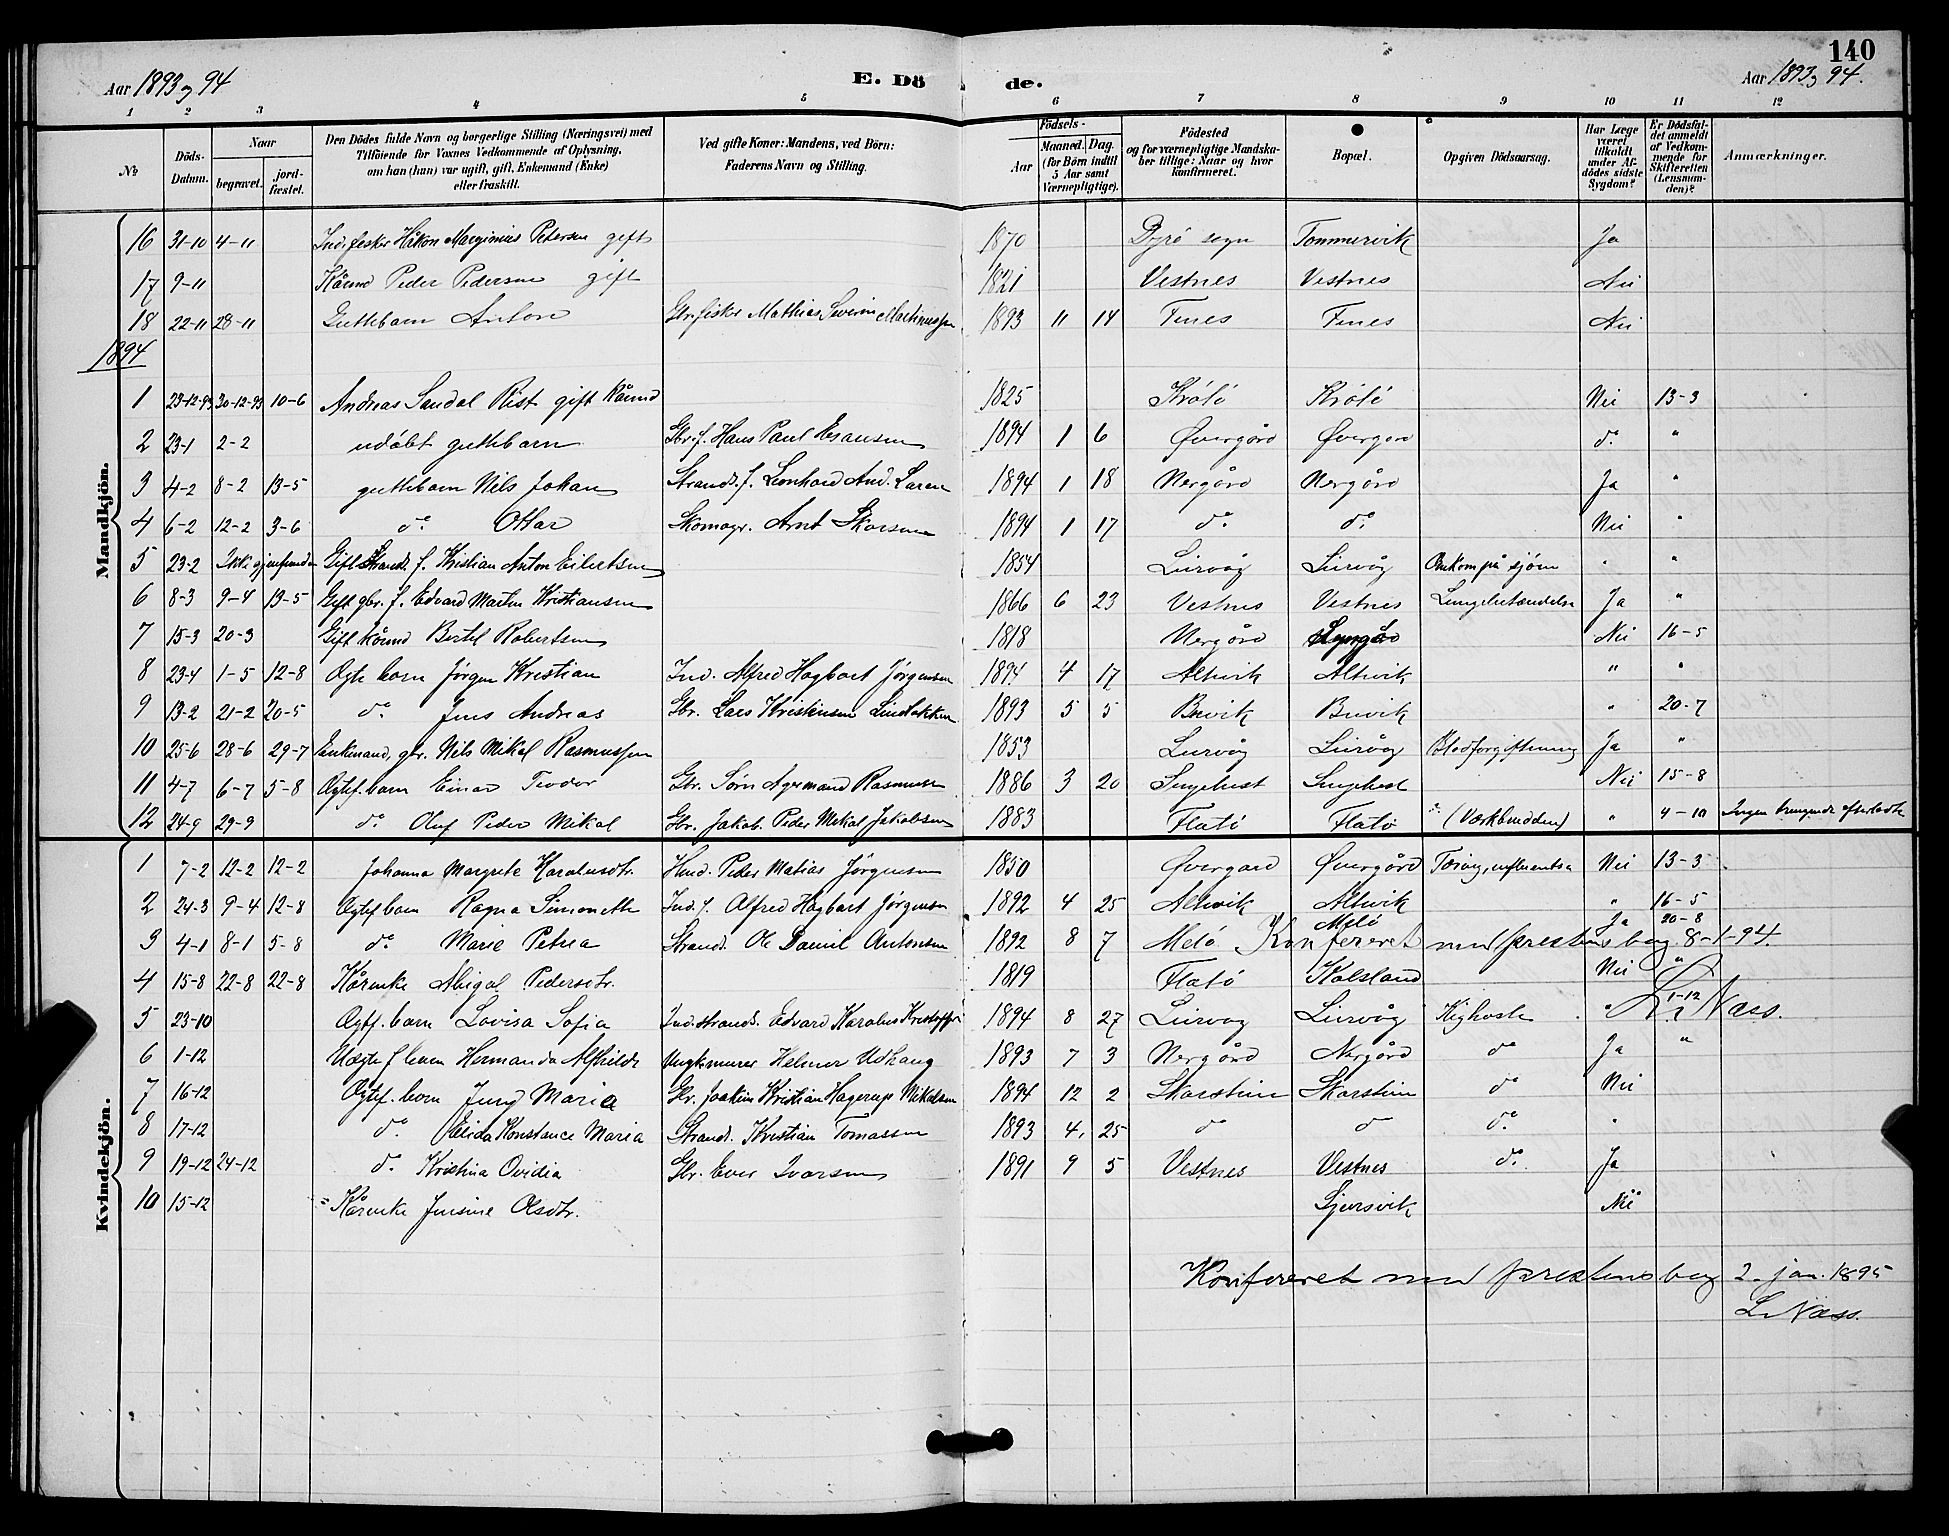 140
Aar 1893 og 94
E. Dö
de.
Aar 1893 og 94.
1 2 3 4 5 6 7 8 9 10 11 12
№
Döds-Datum.
Naar
begravet.
jord-fæstet.
Den Dödes fulde Navn og borgerlige Stilling (Næringsvei) med Tilföiende for Voxnes Vedkommende af Oplysning, om han (hun) var ugift, gift, Enkemand (Enke) eller fraskilt.
Ved gifte Koner: Mandens, ved Börn: Faderens Navn og Stilling.
Födsels-
Aar
Maaned. Dag.
(for Börn indtil 5 Aar samt Værnepligtige).
Födested og for værnepligtige Mandskaber tillige: Naar og hvor konfirmeret.
Bopæl.
Opgiven Dödsaarsag.
Har Læge været tilkaldt under Afdödes sidste Sygdom?
Er Dödsfaldet anmeldt af Vedkommende for Skifteretten (Lensmanden)?
Anmærkninger.
Mandkjön.
16 31-10 4-11 Ind. fisker Håkon Marginius Petersen gift 1870 Dyrö sogn Tommervik Ja
17 9-11 Kårmd Peder Pedersen gift 1821 Vestnes Vestnes Nei
18 22-11 28-11 Guttebarn Anton Gbr. fisker Mathias Severin Martinussen 1893 11 14 Finnes Finnes Nei
1894
1 23-12-93 30-12-93 10-6 Andreas Sandal Rist gift Kårmd 1825 Krölö Krölö Nei 13-3
2 23-1 2-2 udöbt guttebarn Gbr. f. Hans Paul Esausen 1894 1 6 Øvergård Øvergård do. "
3 4-2 8-2 13-5 guttebarn Nils Johan Strands. f. Leonhard And. Larsen 1894 1 18 Nergård Nergård Ja "
4 6-2 12-2 3-6 do Ottar Skomagr. Arnt Skarsen 1894 1 17 do do. Nei "
5 23-2 Ikke gjenfunden Gift Strands. f. Kristian Anton Eilertsen 1854 Lurvåg Lurvåg Omkom på sjöen " "
6 8-3 9-4 13-5 Gift gbr. f. Edvard Martin Kristiansen 1866 6 23 Vestnes Vestnes Lungebetændelse Ja "
7 15-3 20-3 Gift kårmd Bertel Robertsen 1818 Nergård Nei 16-5
8 23-4 1-5 12-8 Ægte barn Jørgen Kristian Ind. Alfred Hagbart Jörgensen 1894 4 17 Altevik Altevik " "
9 13-2 21-2 20-5 do Jens Andreas Gbr. Lars Kristensen Lindbakken 1893 5 5 Buvik Buvik " 20-7
10 25-6 28-6 29-7 Enkemand, gbr. Nils Mikal Rasmussen 1853 Lurvåg Lurvåg Blodforgiftning Ja "
11 4-7 6-7 5-8 Ægtef. barn Einar Teodor Gbr. Sörn Agermand Rasmussen 1886 3 20 Nei 15-8
12 24-9 29-9 do Oluf Peder Mikal Gbr. Jakob Peder Mikal Jakobsen 1883 Flatö Flatö " 4-10 Ingen efterladte
Kvindekjön.
1 7-2 12-2 12-2 Johanna Margrete Karolusdtr. Hmd. Peder Matias Jörgensen 1850 Øvergard Øvergård Tæring, influentsa Nei 13-3
2 24-3 9-4 12-8 Ægtef barn Ragna Simonette Ind. f. Alfred Hagbart Jörgensen 1892 4 25 Altevik Altevik " 16-5
3 4-1 8-1 5-8 do Marie Petrea Strands. Ole Daniel Antonsen 1892 8 7 Melö Melö Ja 20-8
Konfereret med prestens bog 8-1-94.
4 15-8 22-8 22-8 Kårenke Abigal Pedersdtr. 1819 Flatö Kalsland Nei "
L. Næss.
5 23-10 Ægtf. barn Lovisa Sofia Ind. strands. Edvard Karolus 1894 8 27 Lurvåg Lurvåg Kighoste " 1-12
6 1-12 Uægte f. barn Hermanda Alfhilde Ungk. Helmer Udhaug 1893 7 3 Nergård Nergård do Ja "
7 16-12 Ægtef. barn Jenny Maria Gbr. Joakim Kristian Hagerup Mikalsen 1894 12 2 Skarstein Skarstein do Nei
8 17-12 do. Elida Konstance Maria Strands. Kristian Tomassen 1893 4 25 do do do. "
9 19-12 24-12 do. Kristina Ovidia Gbr. Ever Ivarsen 1891 9 5 Vestnes Vestnes do. Ja
10 15-12 Kårenke Jensine Olsdtr. Sjursvik Nei
Konfereret med prestens bog 2. jan. 1895
L. Næss.